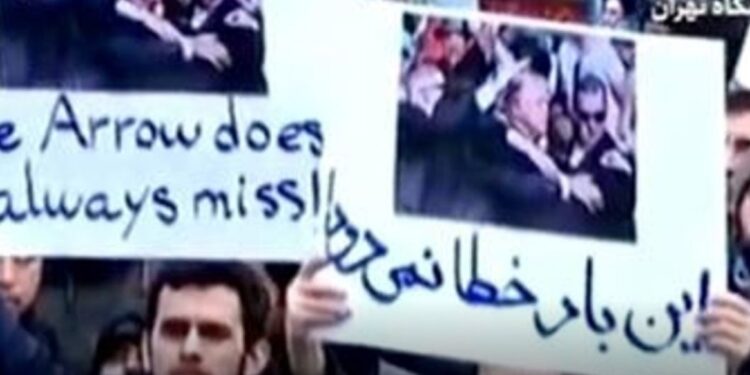 گاه تهران
e Arrow does
always miss!
این بار خطا نمی‌رود